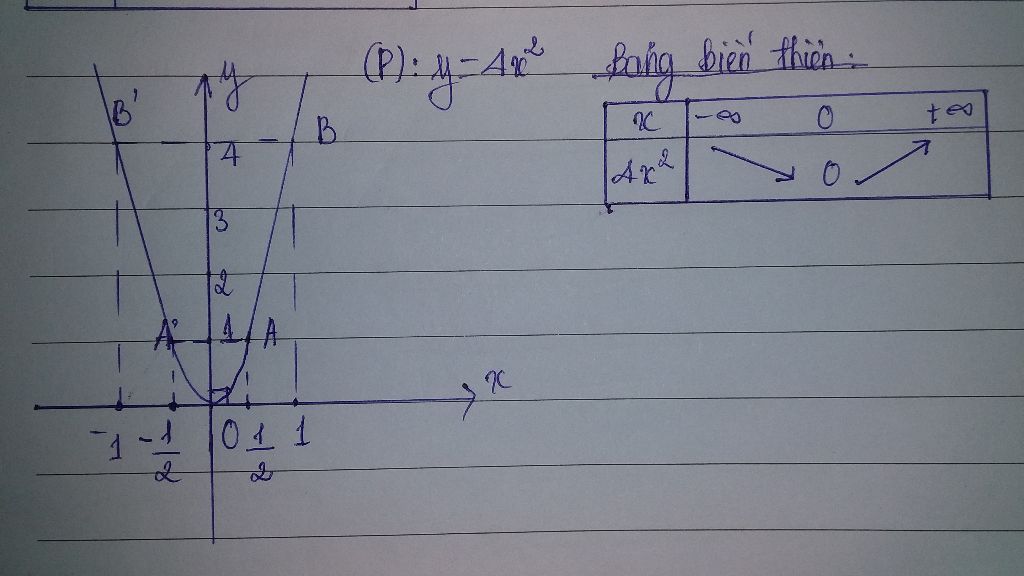 (P): y = 4x² Bảng biến thiên:
x -∞ 0 +∞
4x² 0
y
B' B
4
3
2
A' 1 A
x
-1 -1/2 0 1/2 1